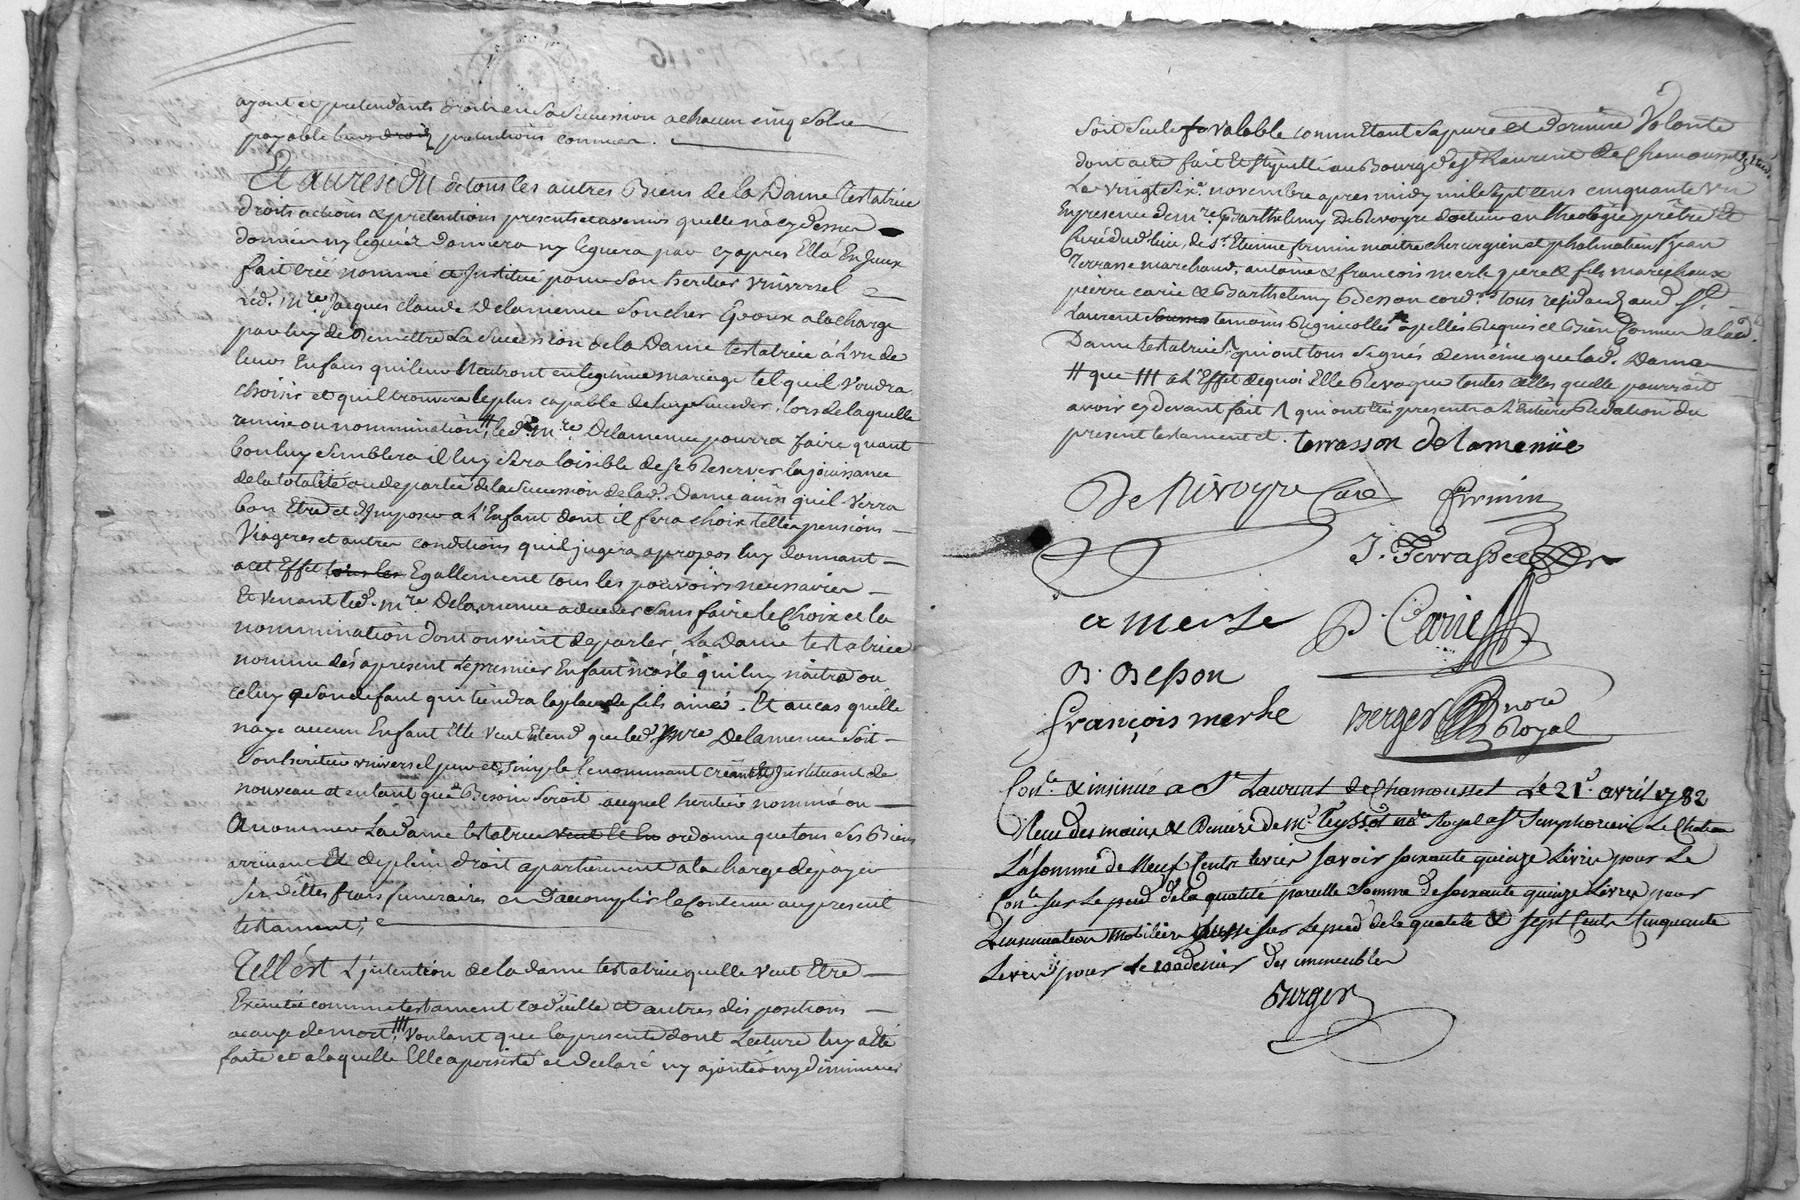 ayant et pretendants droits en sa succession a chacun cinq sols
payable leurs droits pretentions comme
Et au residu de tous les autres Biens de la Dame testatrice
droits actions & pretentions presents et avenirs quelle n'a cy dessus
donnés ny legués donnera ny leguera par cy apres Ella
fait créé nommé et Institué pour son heritier universel
led. Mre Jacques Claude Delamenue son cher Epoux a la charge
par luy de Remettre la succession de la Dame testatrice à l'un de
leurs Enfans qu'ils auront en legitime mariage tel quil voudra
choisir et quil trouvera le plus capable de luy succeder, lors de laquelle
remise ou nommination # led. Mre Delamenue pourra faire quant
bon luy semblera il luy sera loisible de se Reserver la jouissance
de la totalité ou de partie de la succession de lad. Dame ainsi quil verra
bon Etre et d'Imposer a l'Enfant dont il fera choix telles pensions
viageres et autres conditions quil jugera a propos luy donnant
a cet Effet tous les Egallement tous les pouvoirs necessaires
Et venant led. Mre Delamenue a deceder sans faire le choix et la
nommination dont on vient de parler, La Dame testatrice
nomme dés apresent le premier Enfant masle qui luy naitra ou
celuy a son defaut qui tiendra la place de fils ainé. Et au cas quelle
naye aucun Enfant Elle veut Etend que led. Mre Delamenue soit
son heritier universel pur et simple le nommant créant et Instituant de
nouveau et entant que Besoin seroit auquel heritier nommé ou
A nommer La Dame testatrice veut et en ordonne que tous ses Biens
arrivent Et de plein droit apartiennent a la charge de payer
ses dettes frais funeraires et D'accomplir le Contenu au present
testament;
Telle est L'jntention de la dame testatrice quelle veut Etre
Executée comme testament codicille et autres dispositions
a cause de mort, ### Voulant que la presente dont Lecture luy a été
faite et a laquelle Elle a persisté et declaré ny ajouter ny diminuer
soit seule valable comme Etant sa pure et derniere Volonté
dont acte fait Et stipullé au Bourg de St Laurent de Chamousset
Le vingt six. novembre apres midy mil sept cens cinquante un
En presence de mre Barthelemy DeRivoyre docteur en theologie prêtre Et
Curé dud. lieu, de Sr Etienne fermin maitre chirurgien et Jean
Terrasse marchand, antoine & francois merle pere & fils marechaux
pierre carie & Barthelemy Besson cord. tous residants aud. St.
Laurent temoins Regnicolles apellés Requis et Bien Connus a lad.
Dame testatrice qui ont tous signés de même que lad. Dame
# que ### a l'Effet dequoi Elle Revoque toutes Celles quelle pourroit
avoir cy devant fait qui ont été presents a l'Entiere Redation du
present testament et. terrasson delamenüe
De Rivoyre Curé fermin
J. Terrasse
a merle P. Carie
B. Besson
françois merle Berger nore
Royal
Conlé & insinué a St Laurent de Chamousset Le 21. avril 1782
Recu des mains & Deniers de Mr Teyssot nre Royal a St Simphorien Le Chateau
La somme de Neuf Cents livres savoir soixante quinze livres pour Le
Conle sur Le pied de la qualité pareille somme de soixante quinze Livres pour
L'insinuation Mobiliere aussi sur Le pied de la qualité & sept Cents Cinquante
Livres pour Le 100e denier des immeubles
Berger